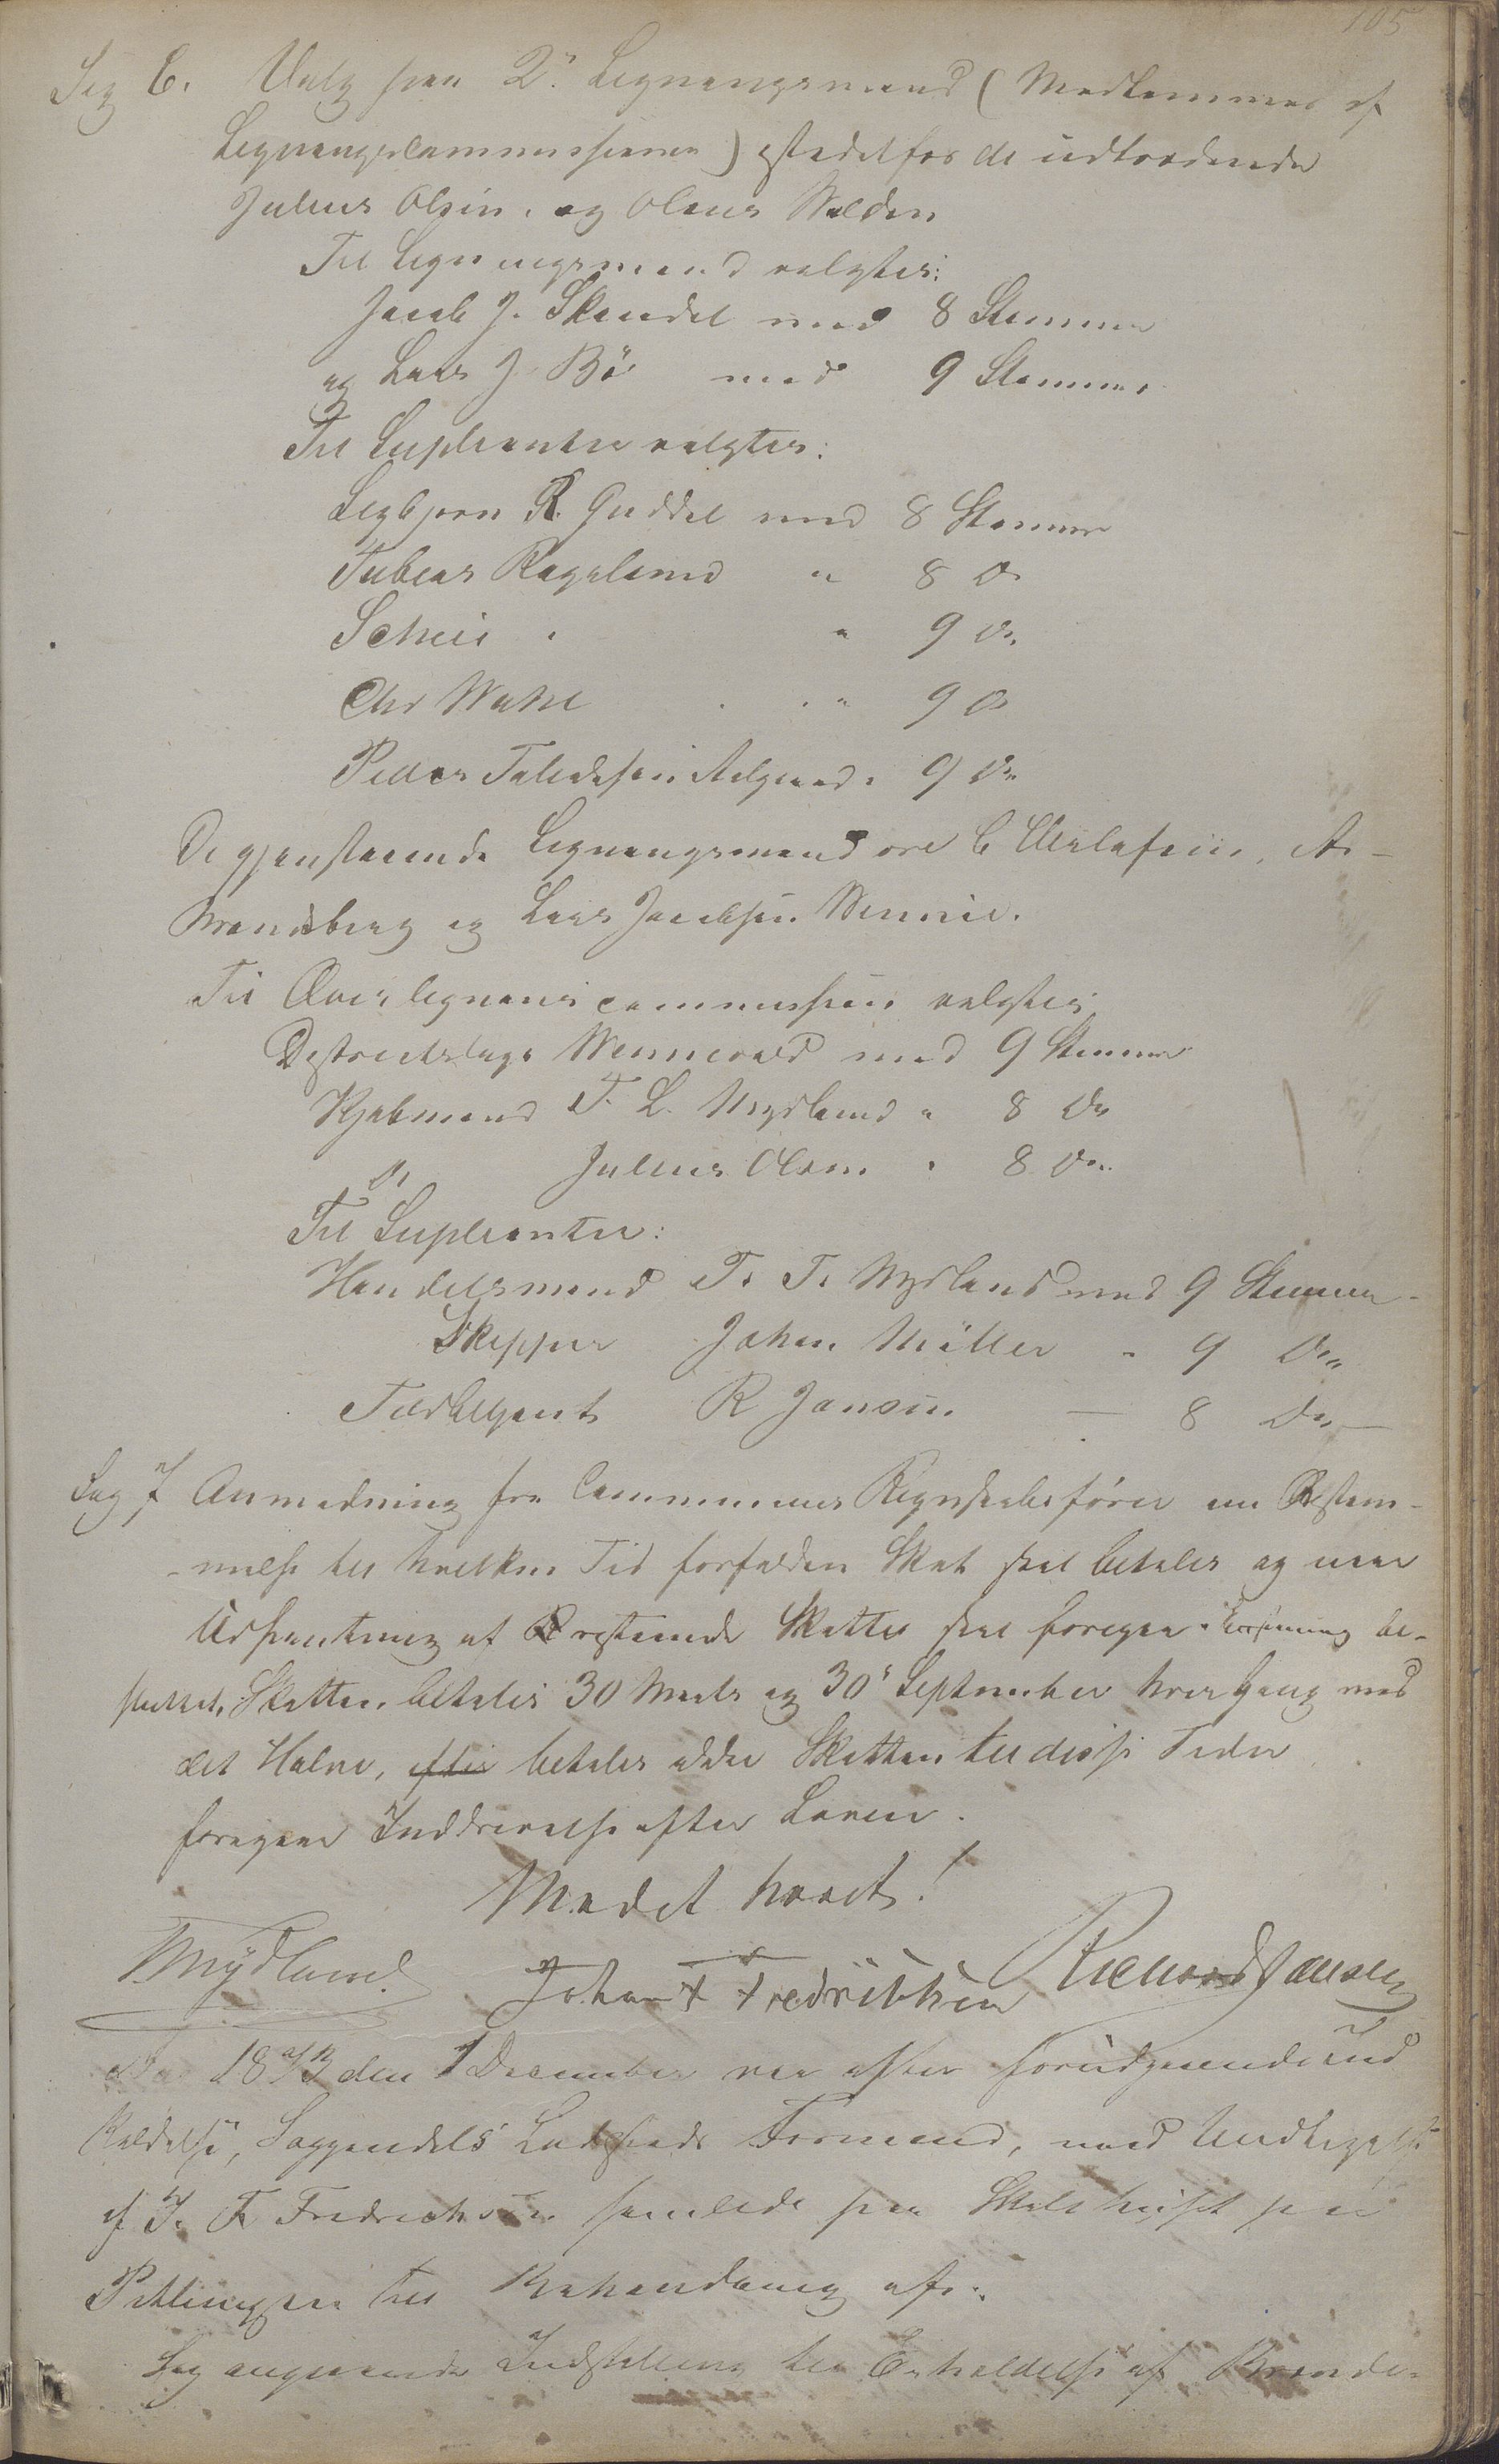 105
Sag 6. Valg paa 2de Ligningsmænd (Medlemmer af
Ligningscommissionen) istedetfor de udtrædende
Julius Olsen, og Olaus Walden
Til Ligningsmænd valgtes:
Jacob J. Skandal med 8 Stemmer
og Lars J. Bö med 9 Stemmer
Til Suplianter valgtes:
Sigbjørn R. Guddal med 8 Stemmer
Tobias Rageland " 8 Do
Scheie " 9 Do
Chr Wahl " 9 Do
Peder Tallaksen Aalgaard " 9 Do
De gjenstaaende Ligningsmænd ere C Ellertsen, A.
Svandberg og Lars Jacobsen
Til Overligningscommission valgtes
Districtslæge Wennevold med 9 Stemmer
Kjøbmand T. L. Mydland " 8 Do
Do Julius Olsen " 8 Do
Til Suplianter:
Handelsmand T. T. Mydland med 9 Stemmer
Skipper Johan Müller " 9 Do
Toldbetjent R Jansen — 8 Do —
Sag 7 Anmodning fra Communens Regnskabsfører om Bestem-
melse til hvilken Tid forfalden Skat skal betales og naar
Udpantning af resterende Skatter skal foregaa. be-
sluttet, Skatten betales 30 Marts og 30te September hver Gang med
det Halve, efter betales ikke Skatten til disse Tider
foregaar Inddrivelse efter Loven.
Mødet hævet!
TMydland Johan F Fredriksen Richard Jansen
Aar 1873 den 1 December var efter forudgaaende Ind
kaldelse, Soggendals Ladesteds Formænd, med Undtagelse
af J. F. Fredrichsen samlede paa Skolehuset paa
til Behandling af:
Sag angaaende Indstilling til Erholdelse af Brænde-